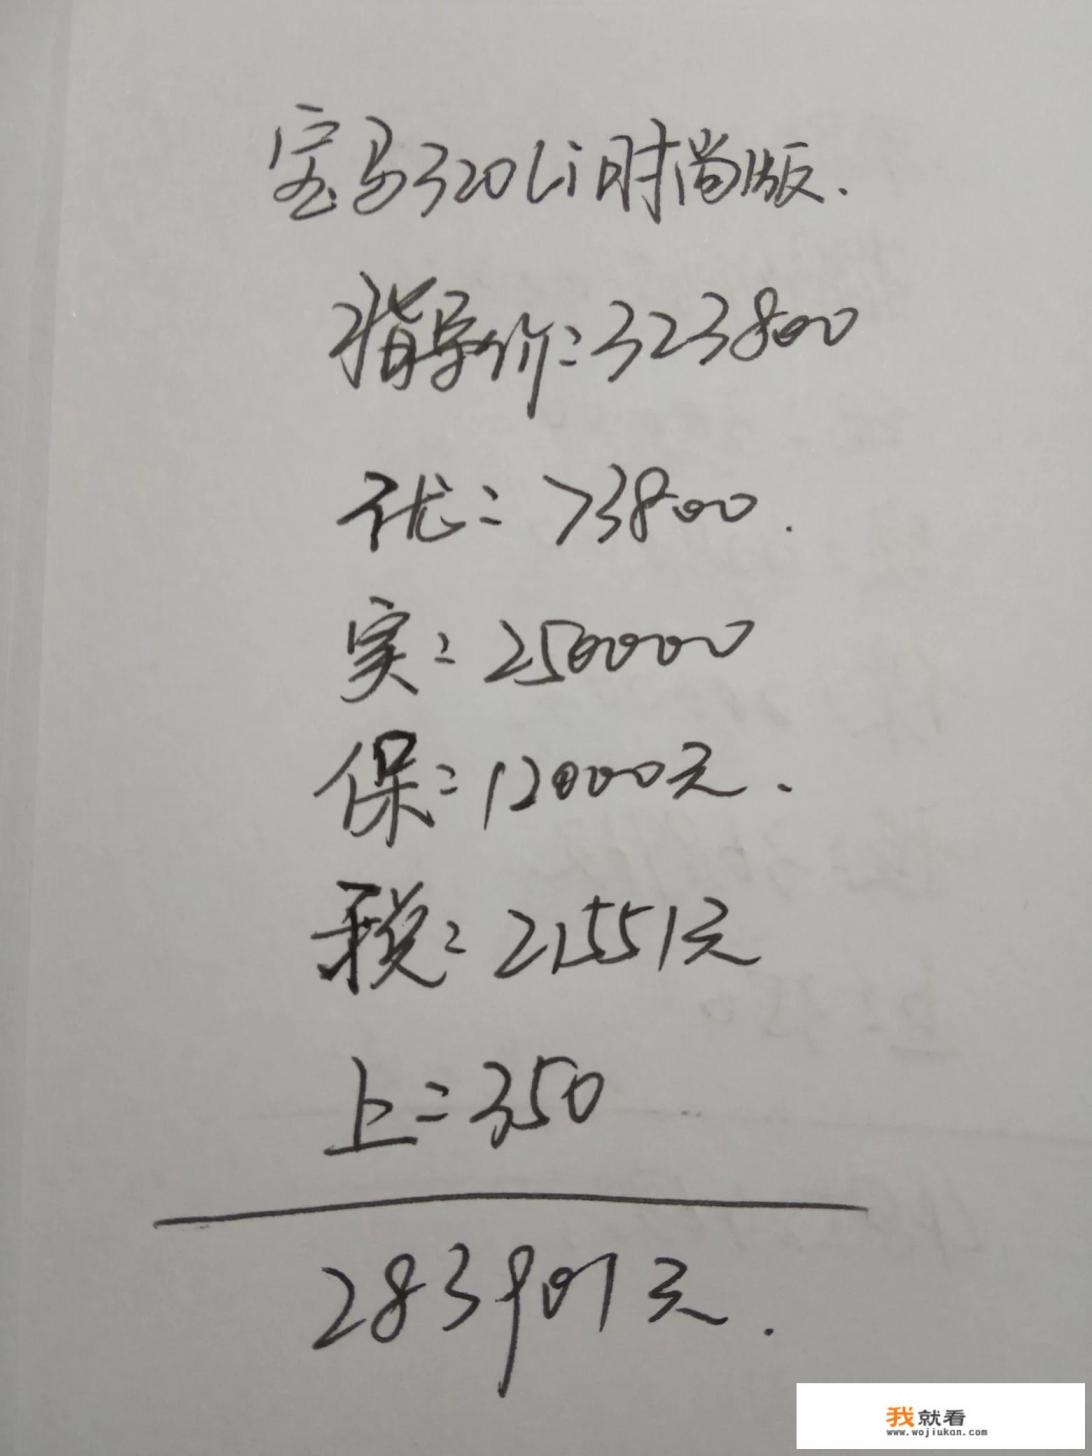 宝马320Li时尚版.
指导价:323800
优:73800.
实:250000
保:12000元.
税:21551元
上:350
283901元.
我就看
www.wojiukan.com